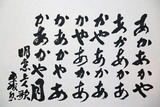 あかあかや
あかあかあ
かやあかあ
かやあかあ
かあかやあ
かあかや月
明恵上人歌